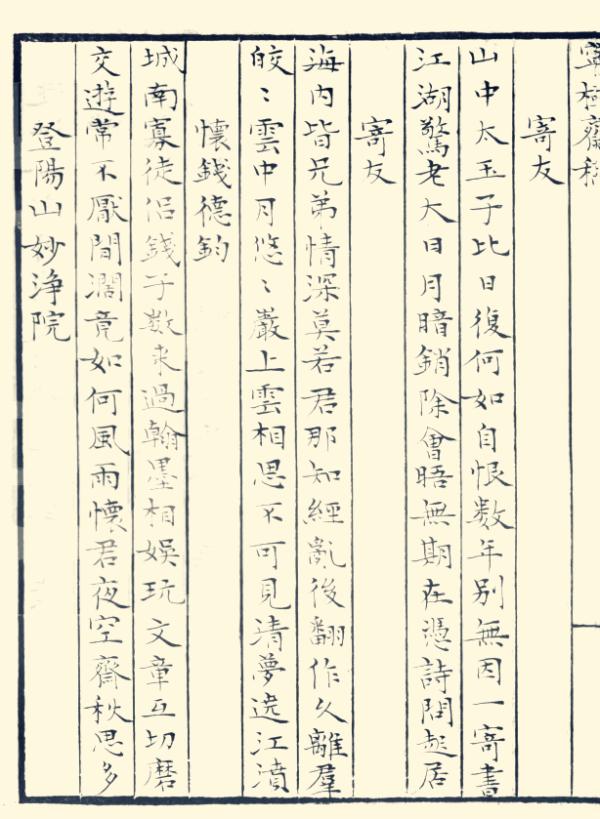 寧極齋稿
寄友
山中太玉子比日復何如自恨数年别無因一寄書
江湖驚老大日月暗銷除會晤無期在憑詩問起居
寄友
海内皆兄弟情深莫若君那知經亂後翻作久離羣
皎〻雲中月悠〻巖上雲相思不可見清夢遶江濆
懷錢德鈞
城南寡徒侣錢子数來過翰墨相娯玩文章互切磨
交遊常不厭間濶竟如何風雨懷君夜空齋秋思多
登陽山妙淨院